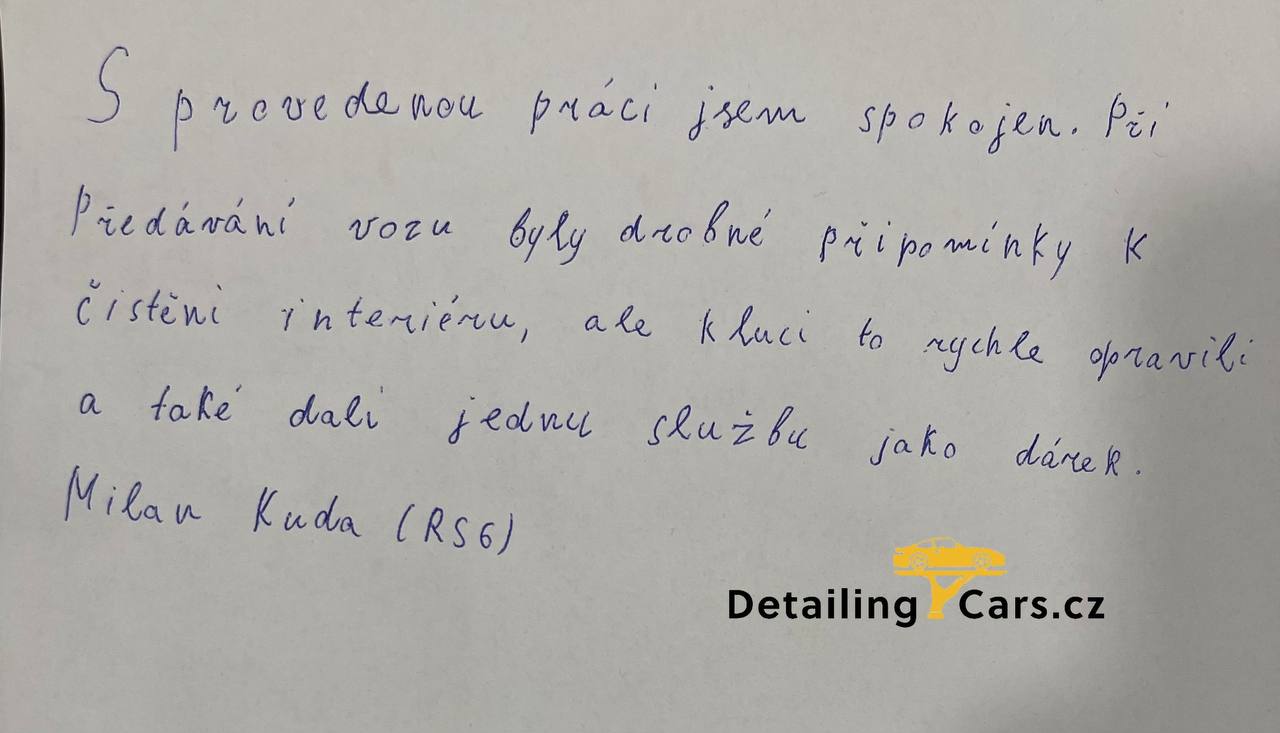 S provedenou práci jsem spokojen. Při
Předávání vozu byly drobné připomínky k
čistěni interiéru, ale kluci to rychle opravili
a také dali jednu službu jako dárek.
Milan Kuda (RS6)
Detailing Cars.cz